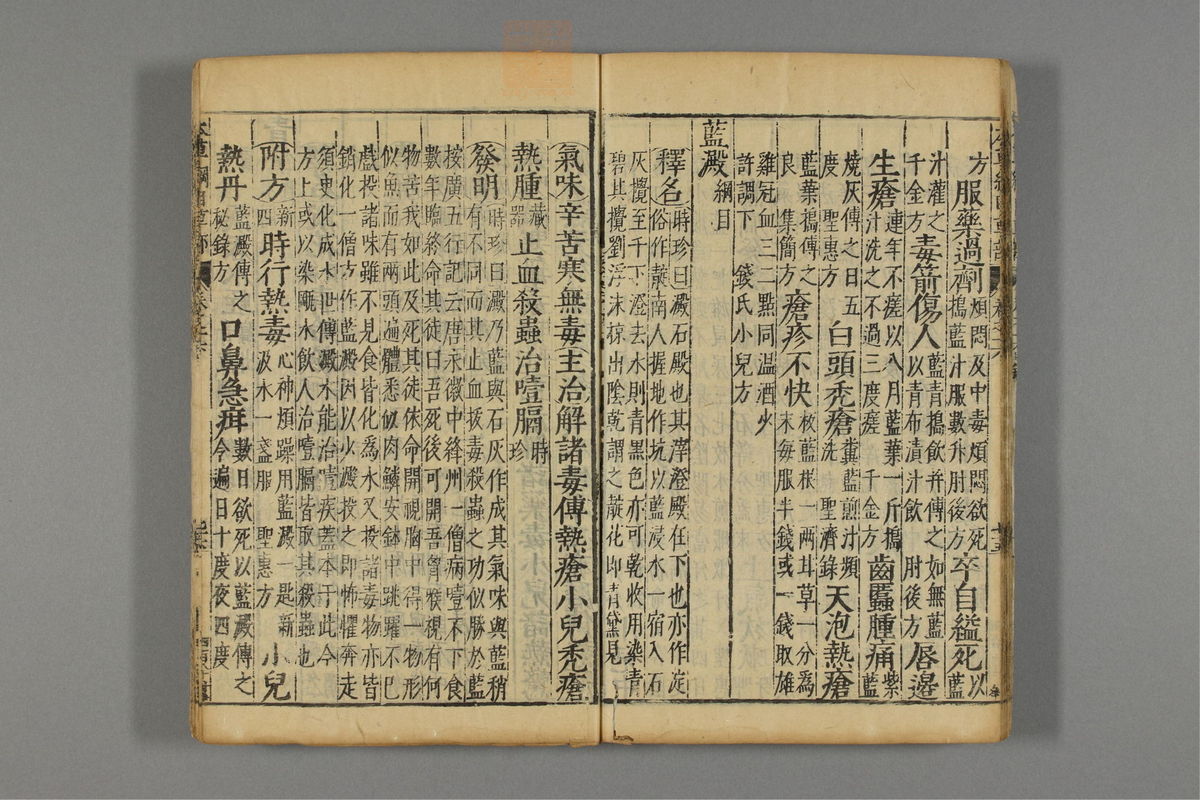 方服藥過劑煩悶及中毒煩悶欲死搗藍汁服數升肘後方卒自縊死以藍
汁灌之千金方毒箭傷人藍青搗飲并傅之如無藍以青布漬汁飲肘後方唇邊
生瘡連年不瘥以八月藍葉一斤搗汁洗之不過三度瘥千金方齒䘌腫痛紫藍
燒灰傅之日五度聖惠方白頭禿瘡糞藍煎汁頻洗聖濟錄天泡熱瘡
藍葉搗傅之良集簡方瘡疹不快板藍根一兩甘草一分為末每服半錢或一錢取雄
雞冠血三二點同温酒少許調下錢氏小兒方
藍澱綱目
釋名時珍曰澱石殿也其滓澄殿在下也亦作淀俗作靛南人掘地作坑以藍浸水一宿入石
灰攪至千下澄去水則青黑色亦可乾收用染青碧其攪刈浮沫掠出陰乾謂之靛花即青黛見
氣味辛苦寒無毒主治解諸毒傅熱瘡小兒禿瘡
熱腫藏器止血殺蟲治噎膈時珍
發明時珍曰澱乃藍與石灰作成其氣味與藍稍有不同而其止血拔毒殺蟲之功似勝於藍
按廣五行記云唐永徽中絳州一僧病噎不下食數年臨終命其徒曰吾死後可開吾胷喉視有何
物苦我如此及死其徒依命開視胸中得一物形似魚而有兩頭遍體悉似肉鱗安鉢中跳躍不已
戲投諸味雖不見食皆化為水又投諸毒物亦皆銷化一僧方作藍澱因以少澱投之即怖懼奔走
須臾化成水世傳澱水能治噎疾蓋本于此今方士或以染甌水飲人治噎膈皆取其殺蟲也
附方新四時行熱毒心神煩躁用藍澱一匙新汲水一盞服聖惠方小兒
熱丹藍澱傅之秘錄方口鼻急疳數日欲死以藍澱傅之令遍日十度夜四度